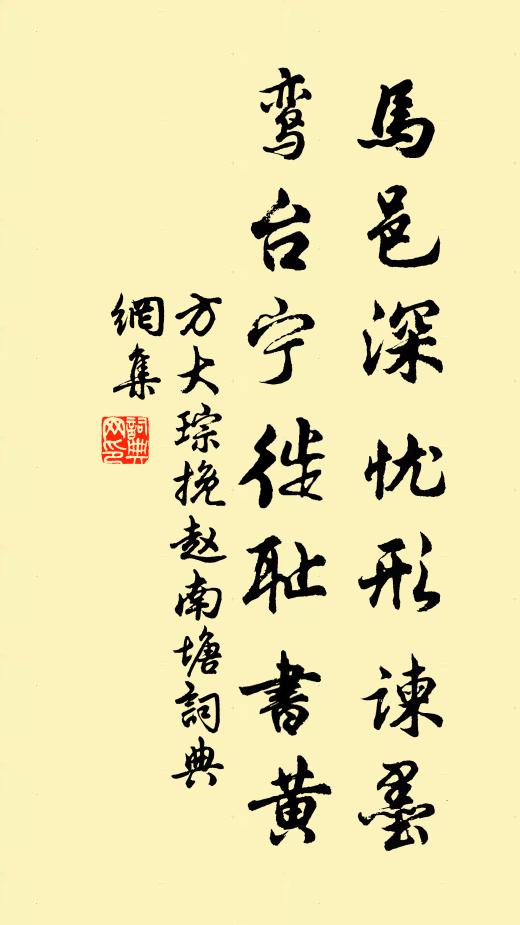 馬邑深忧形谏墨
鸾台宁徙耻書黄
方大琮挽赵南塘詞典
網集
詞典
网印